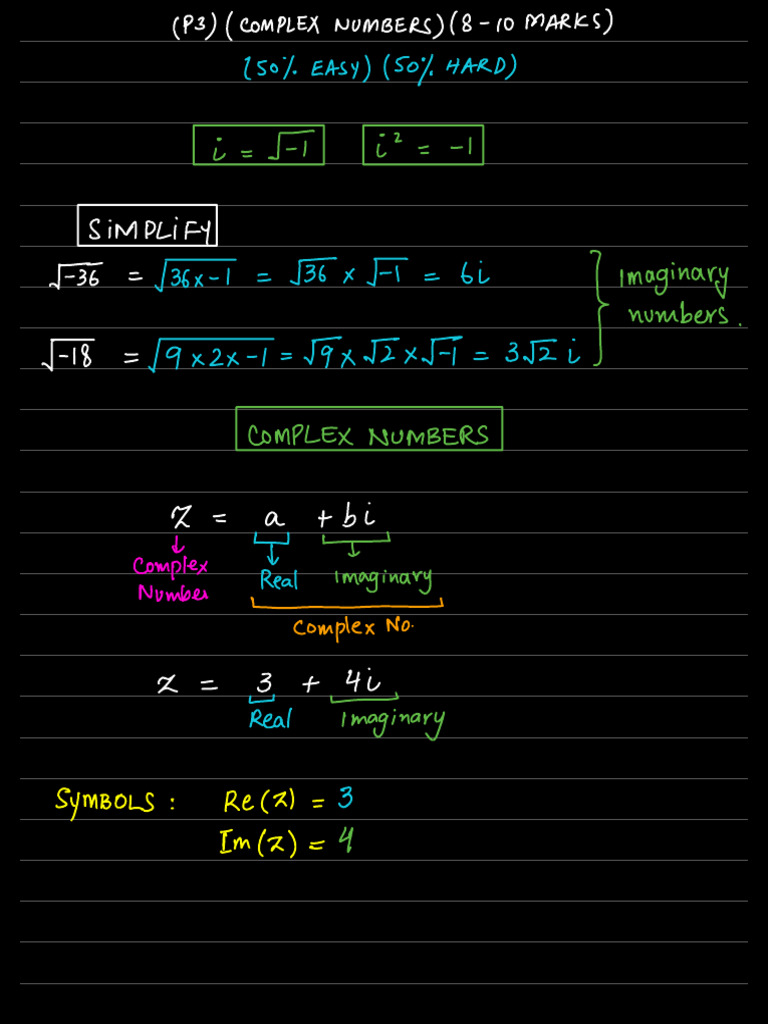 (P3) (COMPLEX NUMBERS) (8-10 MARKS)
(50% EASY) (50% HARD)
i = √-1 i² = -1
SiMPLiFY
√-36 = √36x-1 = √36 x √-1 = 6i
Imaginary
numbers.
√-18 = √9x2x-1 = √9 x √2 x √-1 = 3√2 i
COMPLEX NUMBERS
Z = a + bi
Complex
Number
Real Imaginary
Complex No.
z = 3 + 4i
Real Imaginary
SYMBOLS : Re(z) = 3
Im(z) = 4